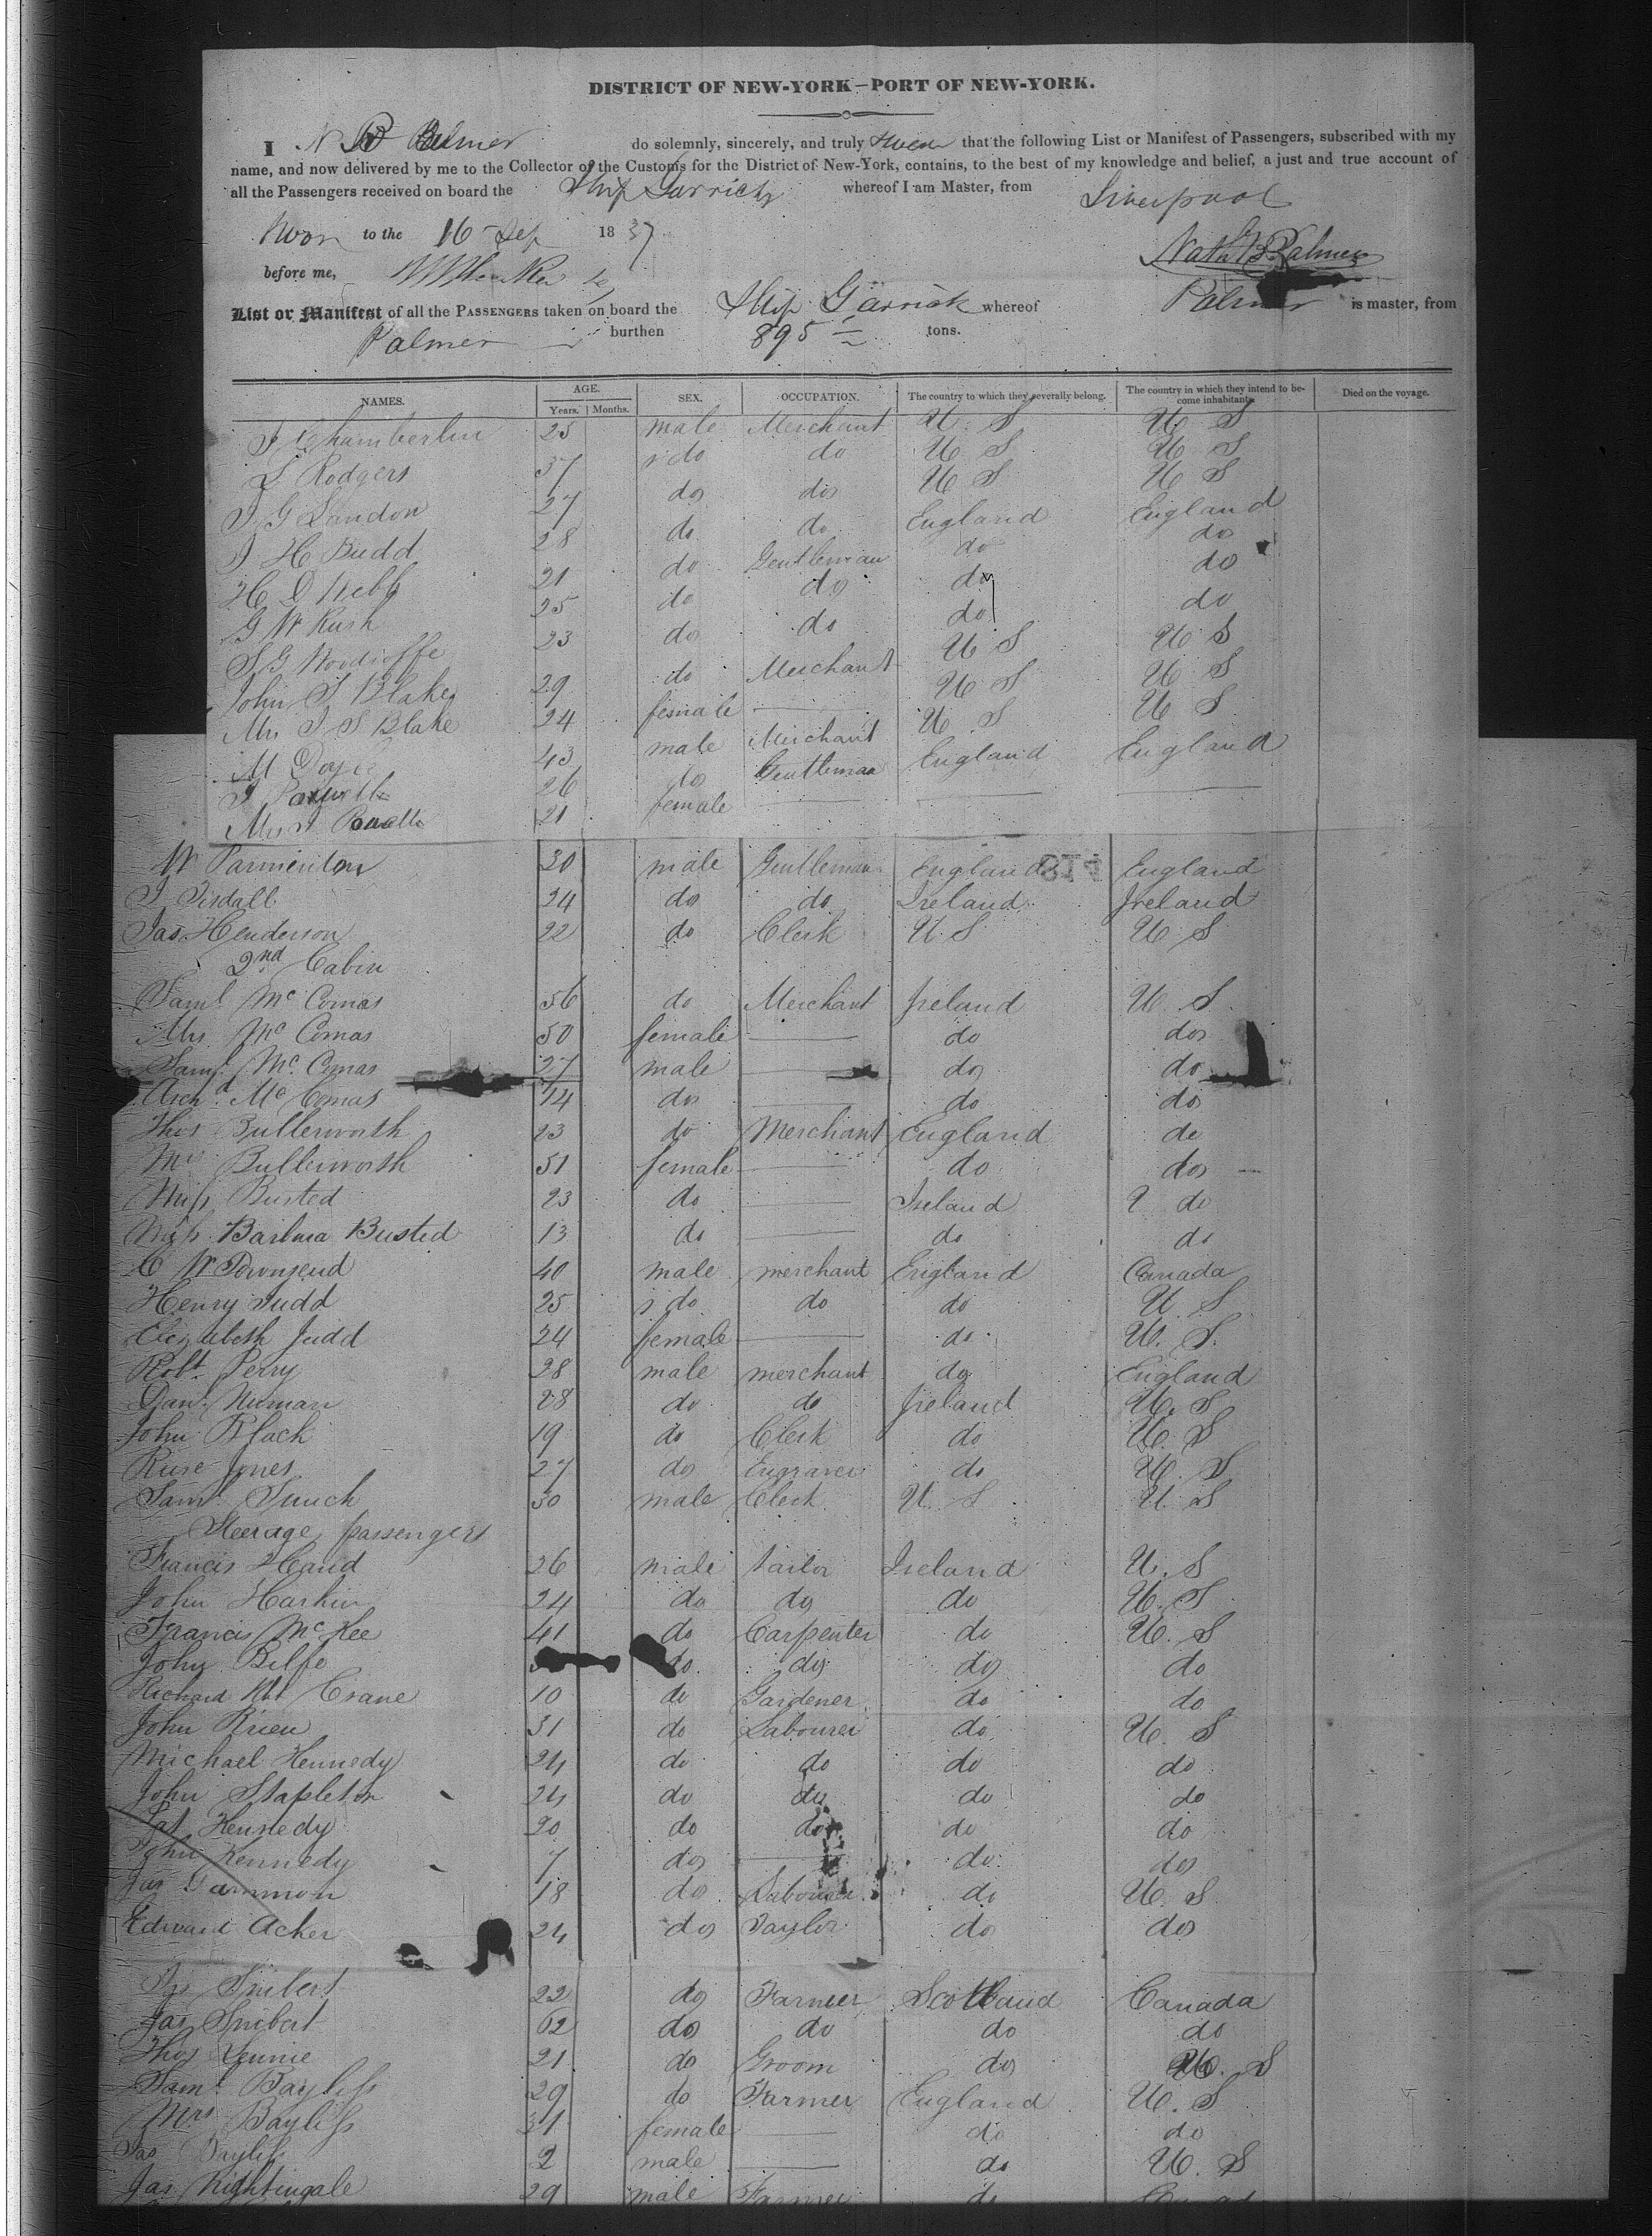 DISTRICT OF NEW-YORK—PORT OF NEW-YORK.
I N B Palmer do solemnly, sincerely, and truly swear that the following List or Manifest of Passengers, subscribed with my
name, and now delivered by me to the Collector of the Customs for the District of New-York, contains, to the best of my knowledge and belief, a just and true account of
all the Passengers received on board the Ship Garrick whereof I am Master, from Liverpool
Sworn to the 16 Sep 1837
Nath B Palmer
before me,
List or Manifest of all the PASSENGERS taken on board the Ship Garrick whereof Palmer is master, from
Palmer burthen 895 tons.
NAMES. AGE. Years. Months. SEX. OCCUPATION. The country to which they severally belong. The country in which they intend to become inhabitants. Died on the voyage.
Chamberlin 25 male Merchant U. S U. S
S Rodgers 37 do do U S U S
J G Landon 27 do do U S U S
J H Budd 28 do do England England
H D Webb 21 do Gentleman do do
G W Rush 25 do do do do
S G 23 do do do do
John S Blake 29 do Merchant U S U S
Mrs J S Blake 24 female — U S U S
M 43 male Merchant U S U S
J 26 do Gentleman England England
Mrs J 21 female — — —
W Parminton 30 male Gentleman England England
J Tisdall 24 do do Ireland Ireland
Jas Henderson 22 do Clerk U S U S
2nd Cabin
Saml Mc Comas 56 do Merchant Ireland U S
Mrs Mc Comas 50 female — do do
Saml Mc Comas 27 male — do do
Archd Mc Comas 14 do — do do
Thos Butterworth 23 do Merchant England do
Mrs Butterworth 51 female — do do —
Miss Busted 23 do — Ireland do
Miss Busted 13 do — do do
C W Townsend 40 male merchant England Canada
Henry Judd 25 do do do U. S
Elizabeth Judd 24 female — do U. S.
Robt Perry 28 male merchant do England
Danl Numan 28 do do Ireland U. S
John Black 19 do Clerk do U. S
Jones 27 do Engraver do U. S
Saml 30 male Clerk U. S U. S
Steerage passengers
Francis Hand 26 male tailor Ireland U. S
John Harkin 24 do do do U. S
Francis McKee 41 do Carpenter do U. S
John do do do do
Richard Crane 10 do Gardener do do
John 31 do Labourer do U. S
Michael Kennedy 24 do do do do
John Stapleton 24 do do do do
Pat Kennedy 20 do do do do
John Kennedy 7 do — do do
Jas Gammon 18 do Labourer do U. S
Edward Acker 24 do Taylor do do
22 do Farmer Scotland Canada
Jas 62 do do do do
Thos Lennie 21 do Groom do U. S
Saml Bayliss 29 do Farmer England U. S
Mrs Bayliss 31 female — do do
Jas Bayliss 2 male — do U. S
Jas Nightingale 29 male Farmer do